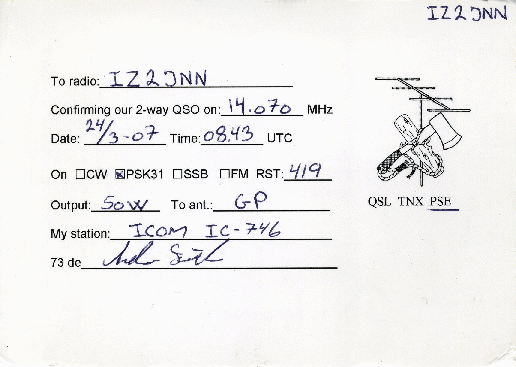 IZ2JNN
To radio: IZ2JNN
Confirming our 2-way QSO on: 14.070 MHz
Date: 24/3-07 Time: 08.43 UTC
On ☐CW ☒PSK31 ☐SSB ☐FM RST: 419
QSL TNX PSE
Output: 50W To ant.: GP
My station: ICOM IC-746
73 de